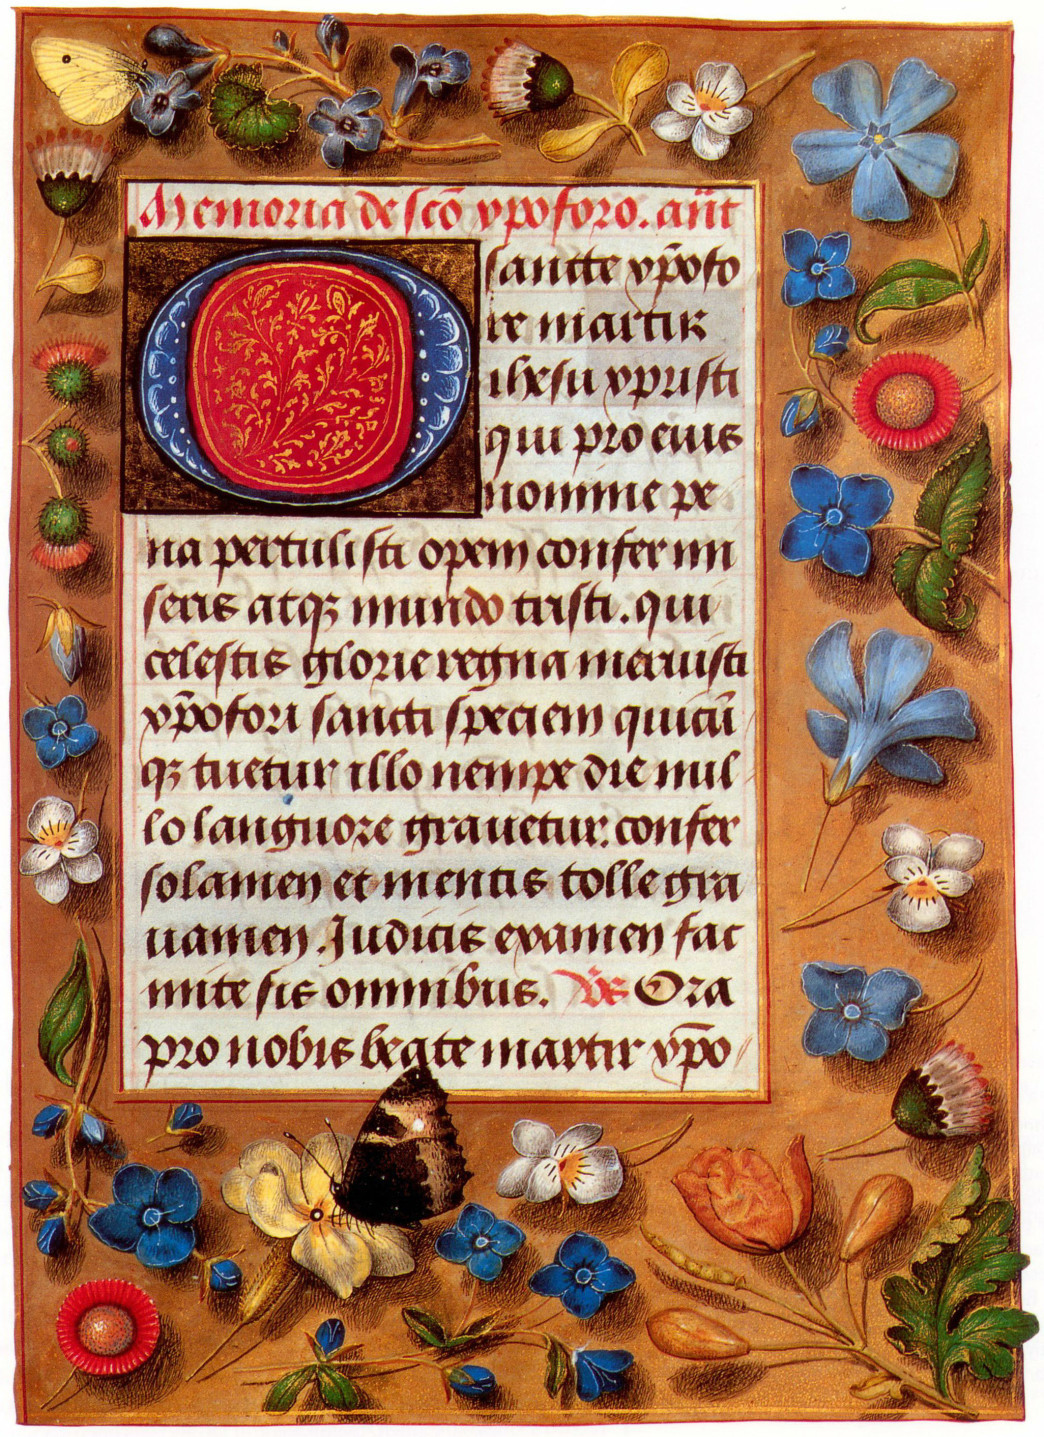 Memoria de scō xp̄oforo. an̄t
O sancte xp̄ofo
re martir
ihesu xpristi
qui pro eius
nomine pe
na pertulisti opem confer mi
seris atqꝫ mundo tristi. qui
celestis glorie regna meruisti
xp̄ofori sancti speciem quicū
qꝫ tuetur illo nempe die nul
lo languore grauetur. confer
solamen et mentis tolle gra
uamen. Judicis examen fac
mite sis omnibus. Vs̄ Ora
pro nobis beate martir xp̄o